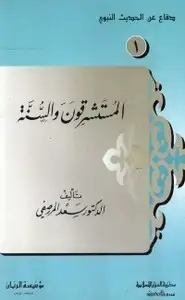 دفاع عن الحديث النبوي
١
المستشرقون والسنة
تأليف
الدكتور سعد المرصفي
مؤسسة الريان